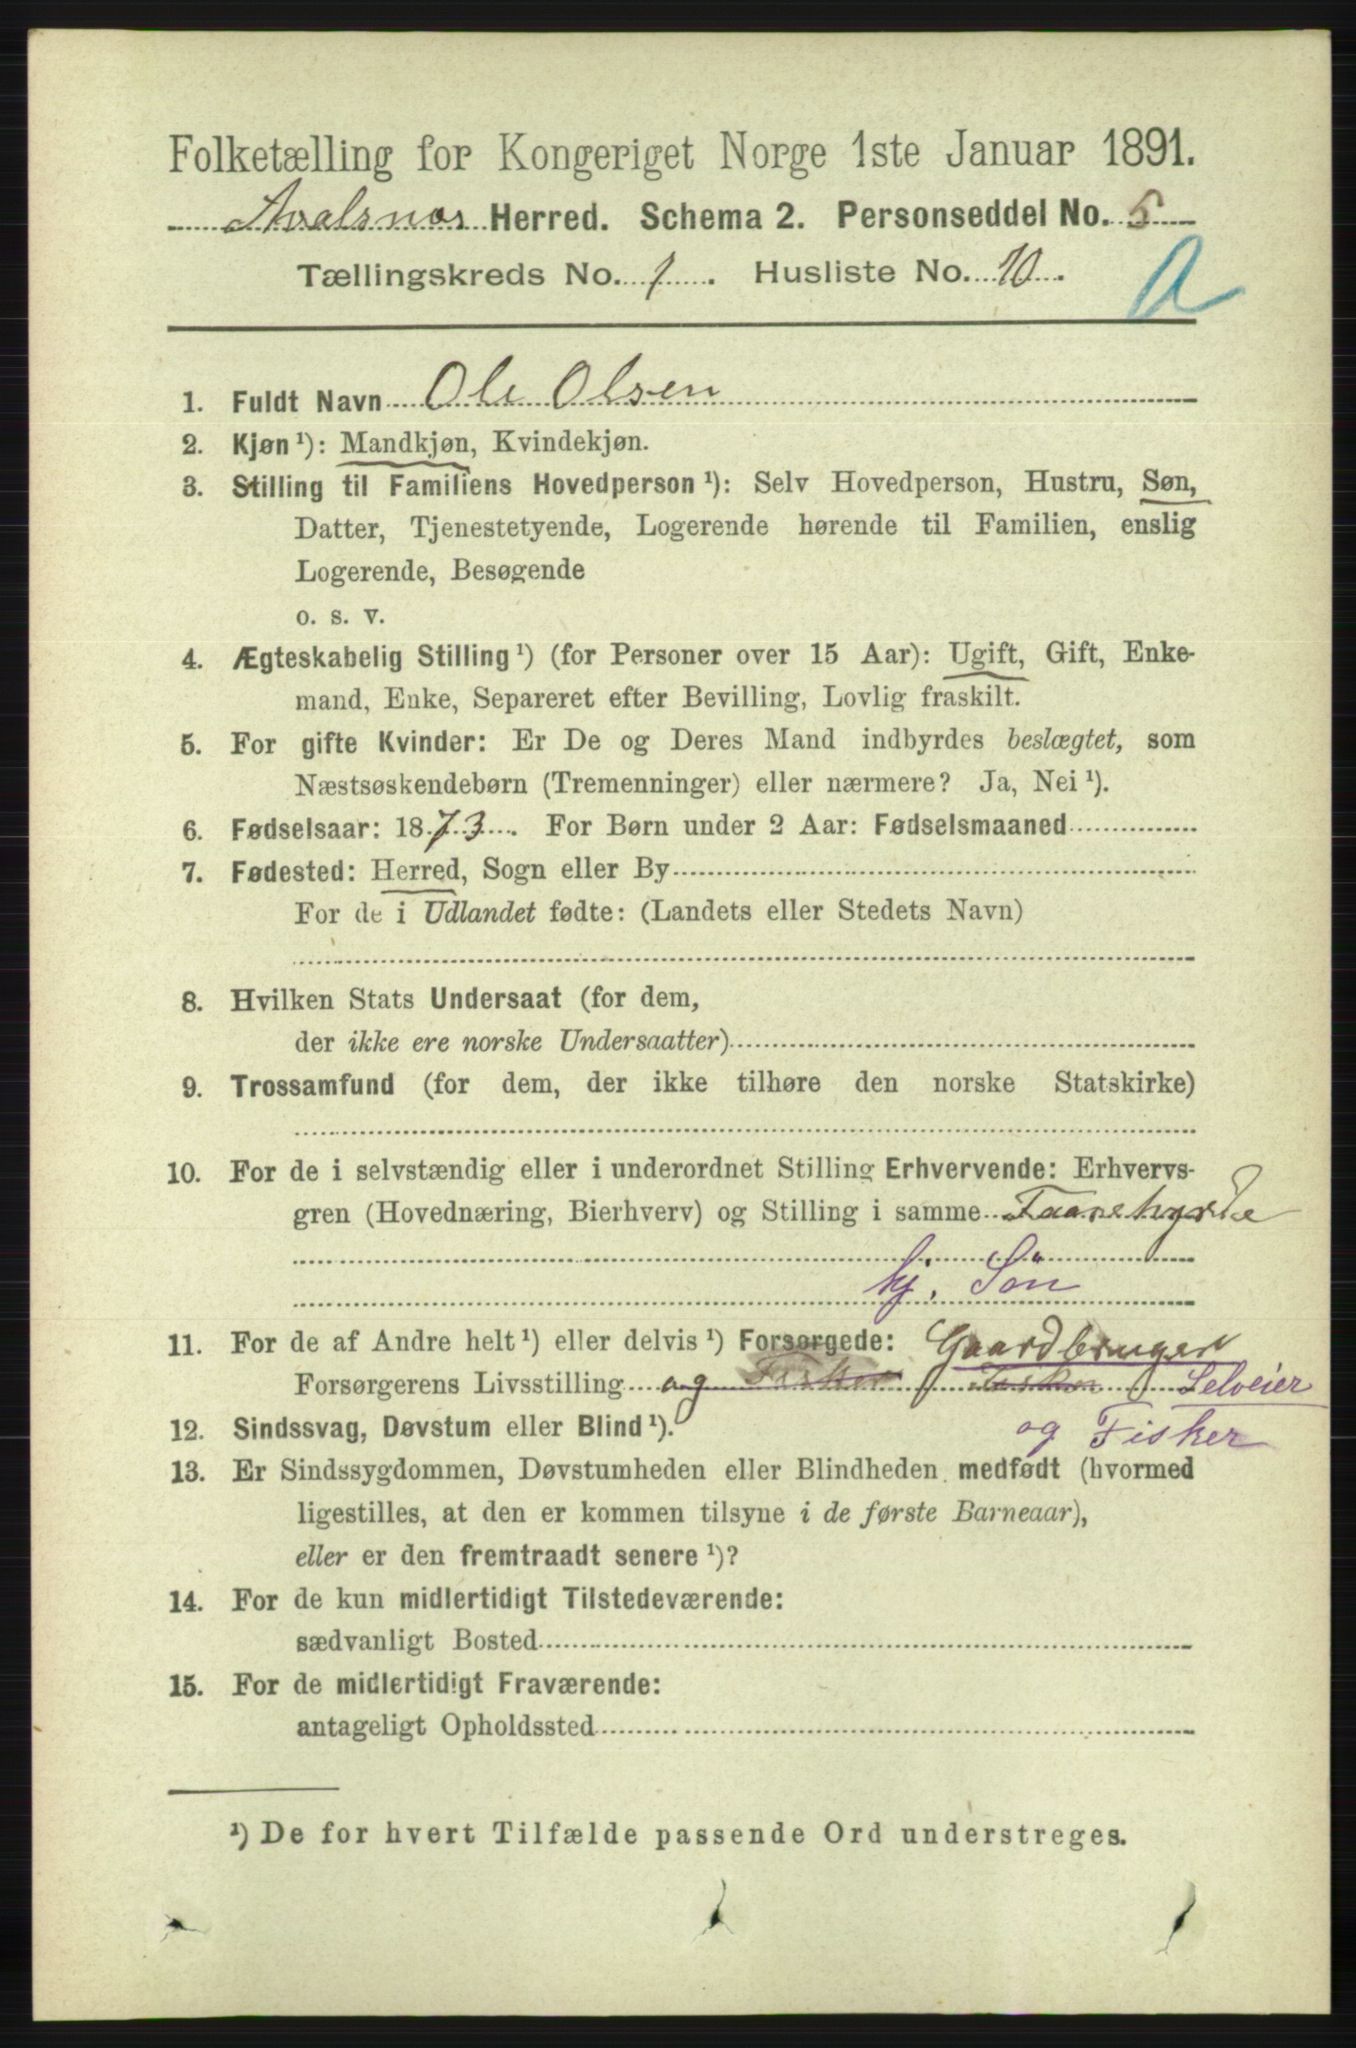 Folketælling for Kongeriget Norge 1ste Januar 1891.
Avalsnæs Herred. Schema 2. Personseddel No. 5
Tællingskreds No. 1. Husliste No. 10.
A
1. Fuldt Navn Ole Olsen
2. Kjøn ¹): Mandkjøn, Kvindekjøn.
3. Stilling til Familiens Hovedperson ¹): Selv Hovedperson, Hustru, Søn,
Datter, Tjenestetyende, Logerende hørende til Familien, enslig
Logerende, Besøgende
o. s. v.
4. Ægteskabelig Stilling ¹) (for Personer over 15 Aar): Ugift, Gift, Enke-
mand, Enke, Separeret efter Bevilling, Lovlig fraskilt.
5. For gifte Kvinder: Er De og Deres Mand indbyrdes beslægtet, som
Næstsøskendebørn (Tremenninger) eller nærmere? Ja, Nei ¹).
6. Fødselsaar: 1873. For Børn under 2 Aar: Fødselsmaaned
7. Fødested: Herred, Sogn eller By
For de i Udlandet fødte: (Landets eller Stedets Navn)
8. Hvilken Stats Undersaat (for dem,
der ikke ere norske Undersaatter)
9. Trossamfund (for dem, der ikke tilhøre den norske Statskirke)
10. For de i selvstændig eller i underordnet Stilling Erhvervende: Erhvervs-
gren (Hovednæring, Bierhverv) og Stilling i samme Faarehyrde
hj. Søn
11. For de af Andre helt ¹) eller delvis ¹) Forsørgede: Gaardbruger
Forsørgerens Livsstilling og Fisker Fisker Selveier
og Fisker
12. Sindssvag, Døvstum eller Blind ¹).
13. Er Sindssygdommen, Døvstumheden eller Blindheden medfødt (hvormed
ligestilles, at den er kommen tilsyne i de første Barneaar),
eller er den fremtraadt senere ¹)?
14. For de kun midlertidigt Tilstedeværende:
sædvanligt Bosted
15. For de midlertidigt Fraværende:
antageligt Opholdssted
¹) De for hvert Tilfælde passende Ord understreges.